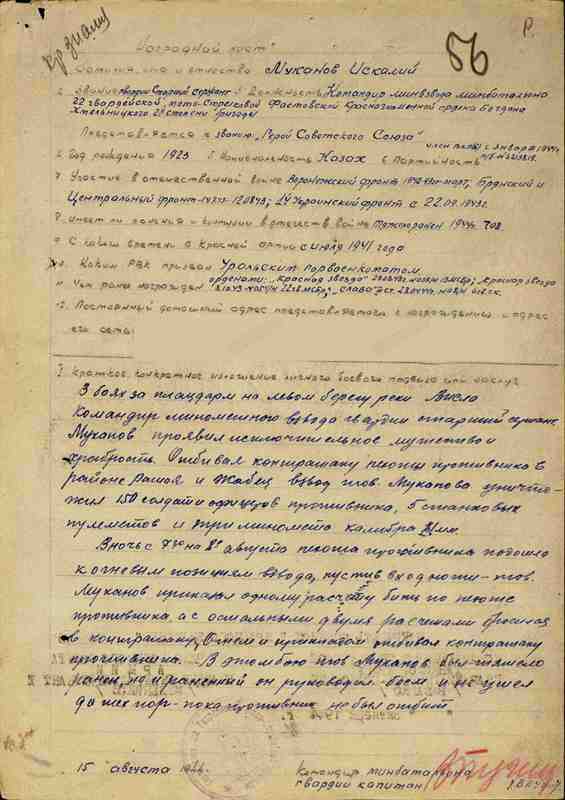 Кр знамя
56
Р.
Наградной лист
1. Фамилия, имя и отчество Муканов Искалий
2. Звание гвардии Старший сержант 3. Должность Командир минвзвода минбатальона
22 гвардейской, мото-Стрелковой Фастовской Краснознаменной ордена Богдана
Хмельницкого 2й степени бригады
Представляется к званию „Герой Советского Союза"
член с января 1944
4. Год рождения 1923 5. Национальность Казах 6. Партийность
7. Участие в отечественной войне Воронежский фронт март; Брянский и
Центральный фронт 12.08.43; 1й Украинский фронт с 22.09.1943г.
8. Имеет ли ранения и контузии в отечеств войне Тяжело ранен 1944г.
9. С какого времени в Красной армии с июля 1941 года
10. Каким РВК призван Уральским горвоенкоматом
11. Чем ранее награжден орденами: „Красная звезда" „Красная звезда"
„Слава" 3 ст.
12. Постоянный домашний адрес представляемого к награждению и адрес
его семьи
I Краткое, конкретное изложение личного боевого подвига или заслуг
В боях за плацдарм на левом берегу реки Висла
командир минометного взвода гвардии старший сержант
Муканов проявил исключительное мужество и
храбрость. Отбивая контратаку пехоты противника в
районе и взвод гвов. Муканова уничто-
жил 150 солдат и офицеров противника, 5 станковых
пулеметов и три миномета калибра 81мм.
В ночь с 7го на 8е августа пехота противника подошла
к огневым позициям взвода, пустив в ход
Муканов приказал одному расчету бить по пехоте
противника, а с остальными двумя расчетами бросился
в контратаку. Огнем и прикладом отбивал контратаку
противника. В этом бою Муканов был тяжело
ранен, но и раненный он руководил боем и не ушел
до тех пор-пока противник не был отбит
15 августа 1944г.
Командир минбатальона
гвардии капитан